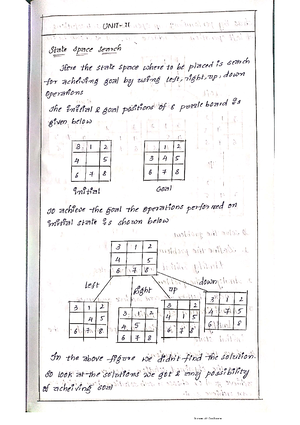 UNIT- II
State space search
Here the state space where to be placed is search
for acheiving goal by using left, right, up, down
operations
The initial & goal positions of 8 puzzle board is
given below
3 1 2
4 5
6 7 8
1 2
3 4 5
6 7 8
initial
Goal
So achieve the goal the operations performed on
initial state is shown below
3 1 2
4 5
6 7 8
left
Right
up
down
3 1 2
4 5
6 7 8
3 1 2
4 5
6 7 8
3 1 2
4 5
6 7 8
3 2
4 1 5
6 7 8
In the above figure we didn't find the solution.
So look at the solutions we got & any possibility
of acheiving goal